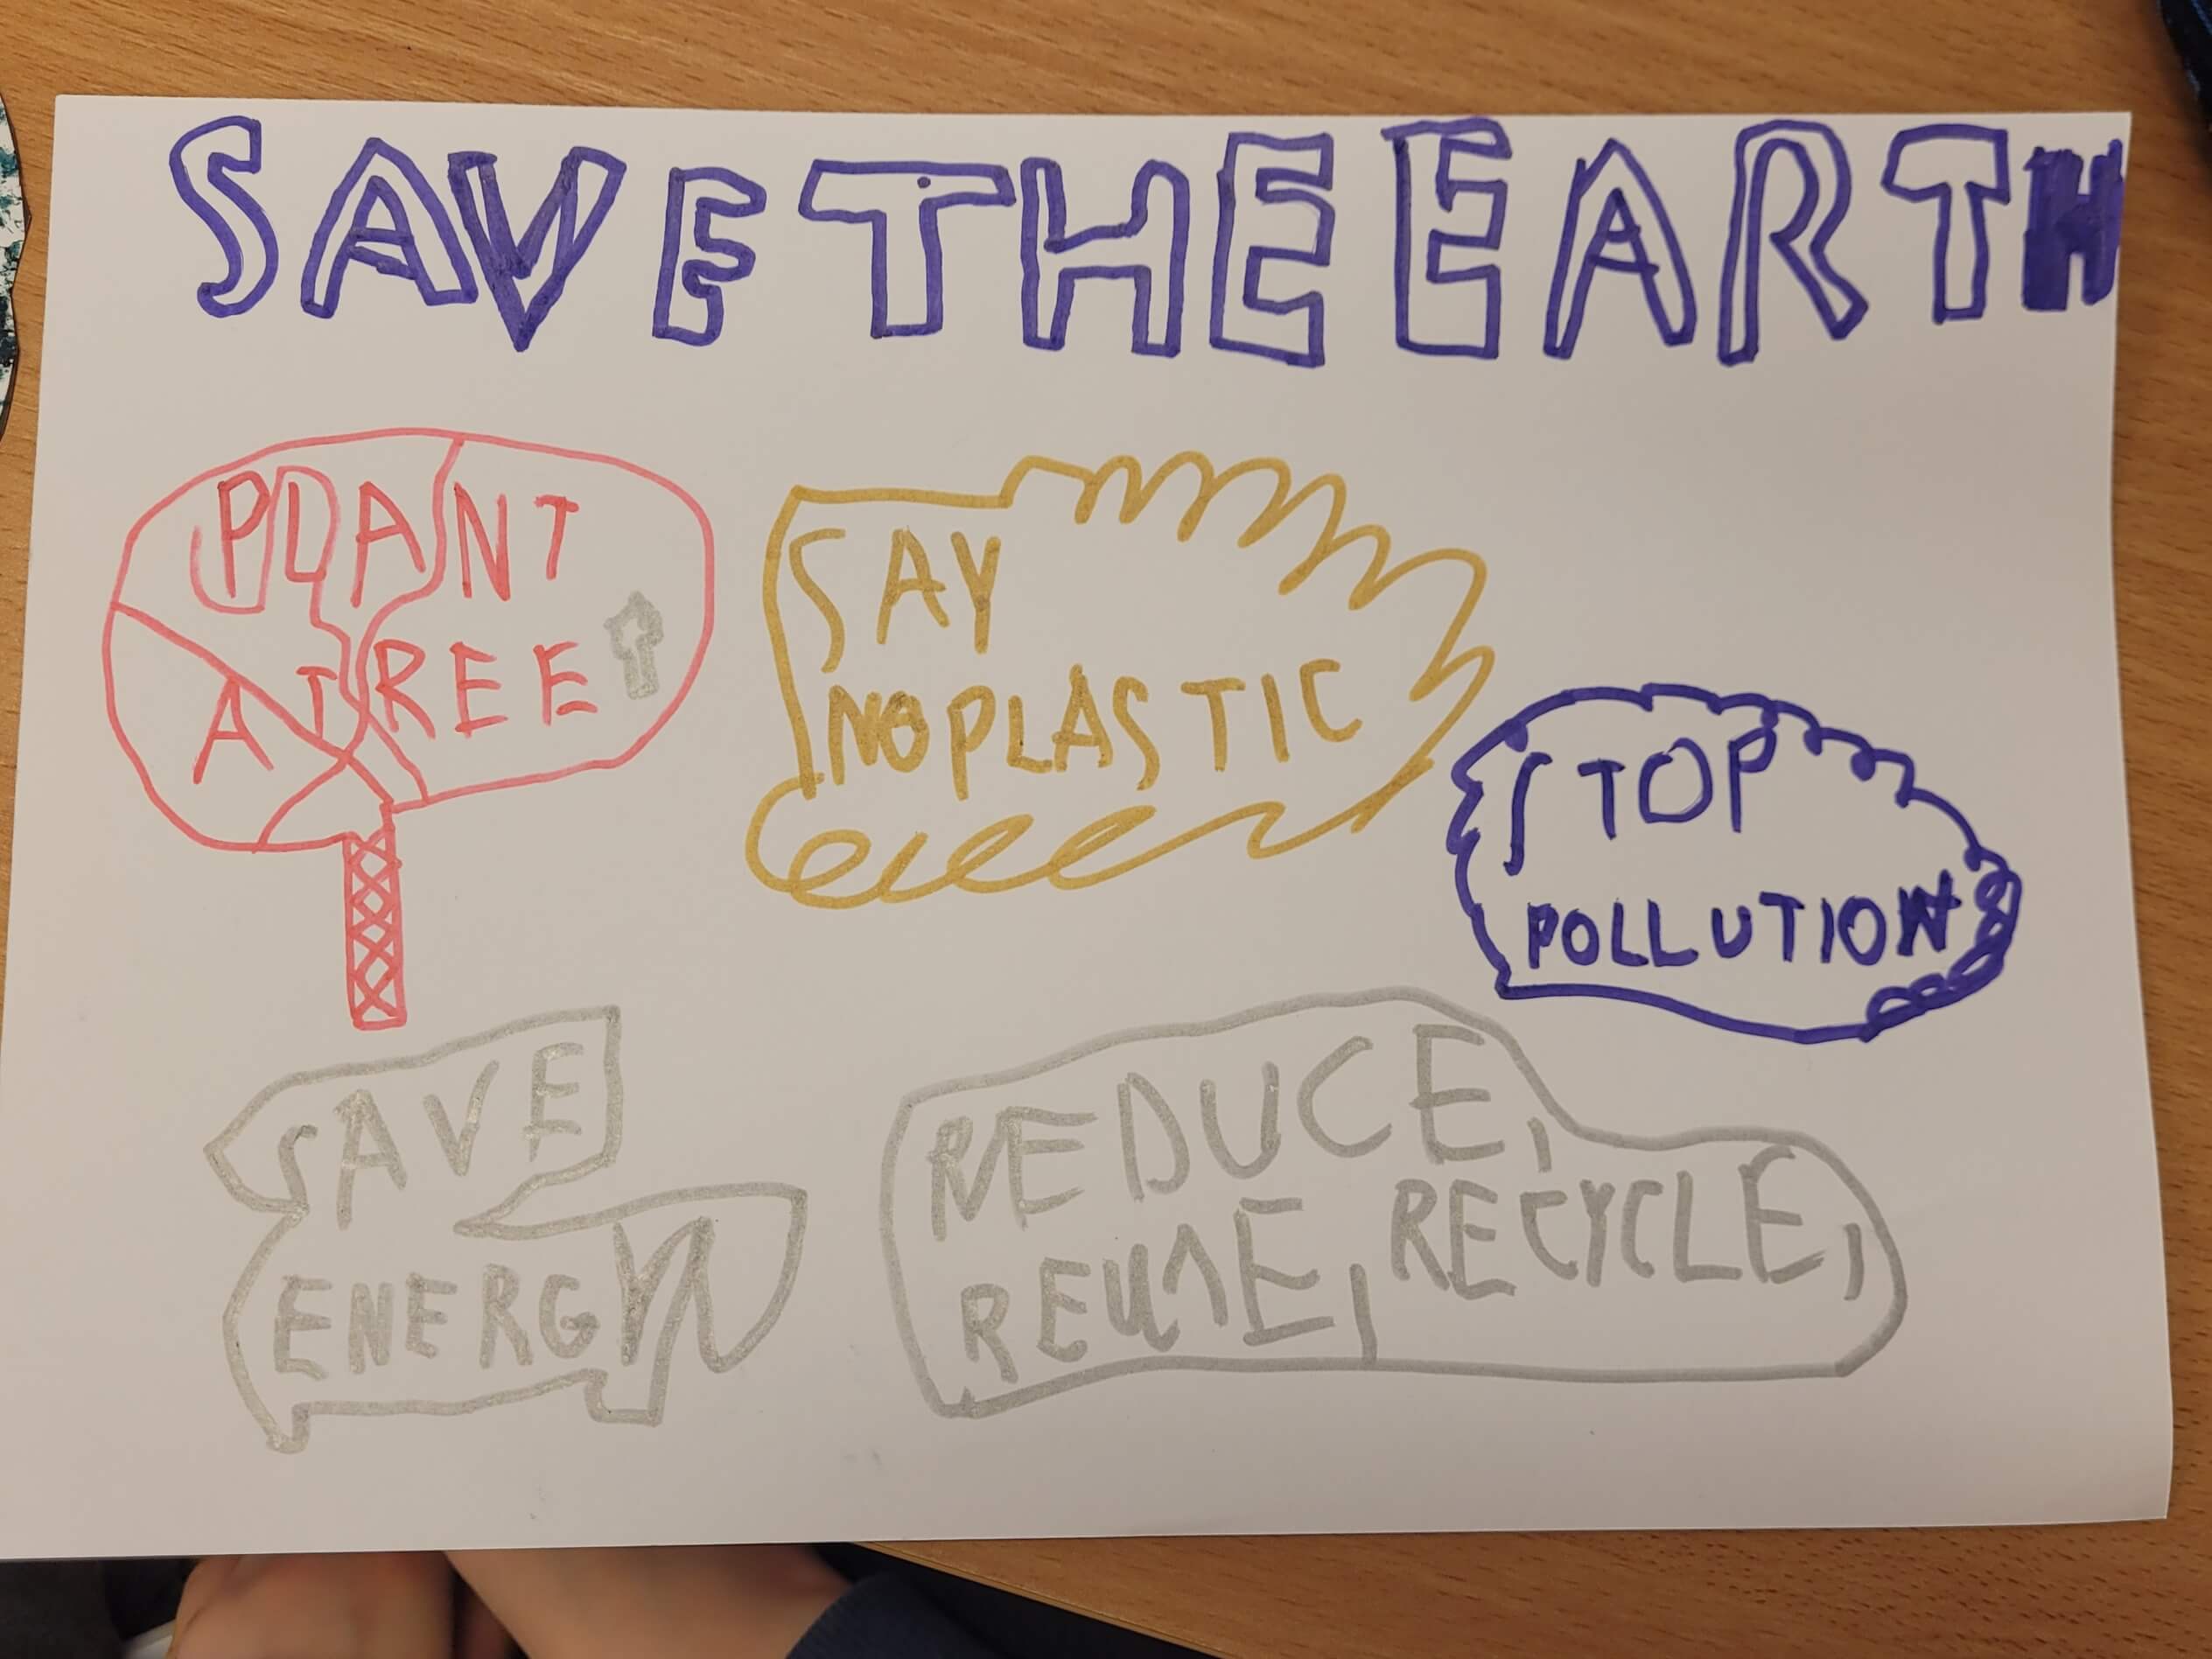 SAVE THE EARTH
PLANT
A TREE
SAY
NO PLASTIC
STOP
POLLUTION
SAVE
ENERGY
REDUCE,
REUSE, RECYCLE,